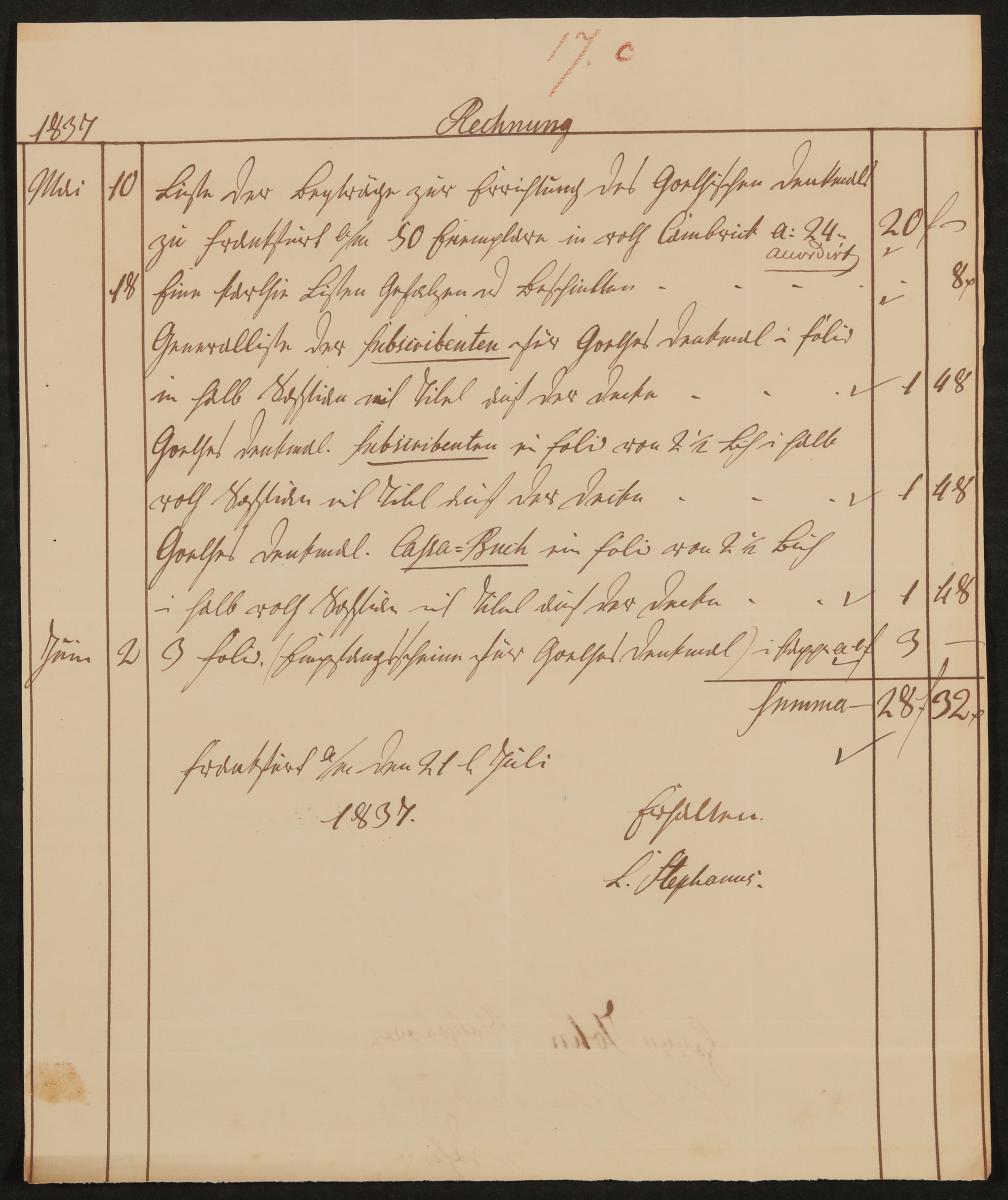 17. c
1837 Rechnung
Mai 10 Liste der Beyträge zur Errichtung des Goetheschen Denkmals
zu Frankfurt a/m 50 Exemplare in roth Cambrick a: 24- 20 f
accordirt
18 Eine Parthie Listen Gefalzen u Beschnitten - - - - - 8x
Generalliste der Subscribenten für Goethes Denkmal i folio
in halb Saffian mit Titel auf der Decke - - - 1 48
Goethes Denkmal. Subscribenten ein folio von 2 1/2 Buch i halb
roth Saffian mit Titel auf der Decke - - - 1 48
Goethes Denkmal. Cassa=Buch ein folio von 2 1/2 Buch
i halb roth Saffian mit Titel auf der Decke - - 1 48
Juni 2 3 folio. (Empfangsscheine für Goethes Denkmal) i Pappe a 1f 3 —
Summa— 28f 32x
Frankfurt a/m den 21 t Juli
1837.
Erhalten.
L. Stephanus.